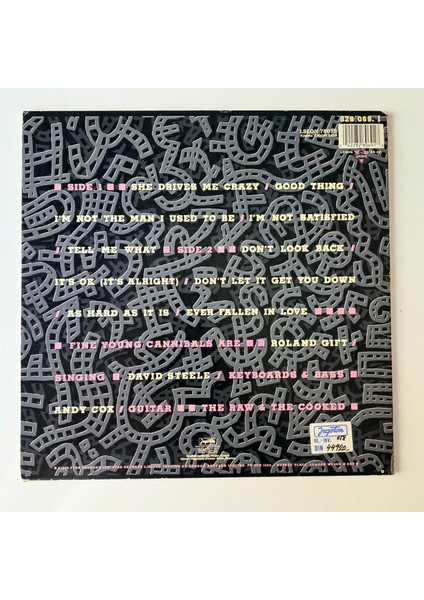 828 069. 1
■ SIDE 1 ■ ■ SHE DRIVES ME CRAZY / GOOD THING /
I'M NOT THE MAN I USED TO BE / I'M NOT SATISFIED
/ TELL ME WHAT ■ SIDE 2 ■ ■ DON'T LOOK BACK /
IT'S OK (IT'S ALRIGHT) / DON'T LET IT GET YOU DOWN
/ AS HARD AS IT IS / EVER FALLEN IN LOVE ■ ■ ■ ■
■ FINE YOUNG CANNIBALS ARE ■ ■ ROLAND GIFT /
SINGING ■ DAVID STEELE / KEYBOARDS & BASS ■
ANDY COX / GUITAR ■ ■ THE RAW & THE COOKED ■
Jugoton
Jugoton
DIN